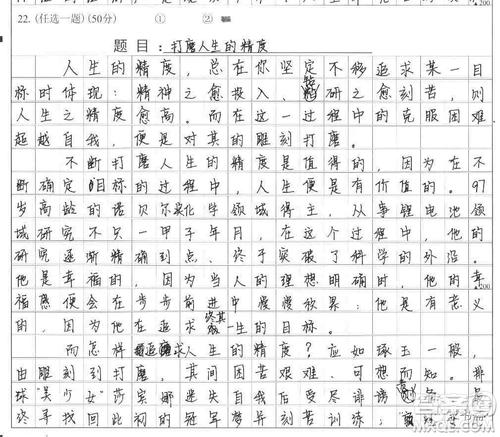 22. (任选一题)(50分) ① ②
题目:打磨人生的精度
人生的精度,总在你坚定不移追求某一目
标时体现:精神之愈投入、钻研之愈刻苦,则
人生之精度愈高。而在这一过程中的克服困难
超越自我,便是对其的雕刻打磨。
不断打磨人生的精度是值得的,因为在不
断确定目标的过程中,人生便是有价值的。97
岁高龄的诺贝尔奖化学领域得主,从事锂电池领
域研究不只一甲子年月,在这个过程中,他的
研究逐渐精确到点、终于突破了科学的外沿。
他是幸福的,因为当人的理想明确时,他的幸
福感便会在步步前进中慢慢放累;他是有意义
的,因为他在追求终其一生的目标。
而怎样追求人生的精度?应如琢玉一般,
由雕刻到打磨,其间困苦艰难、可想而知。排
球"美少女"莎宾娜迷失自我后受尽诽谤
终寻找回此初的冠军梦异刻苦训练;